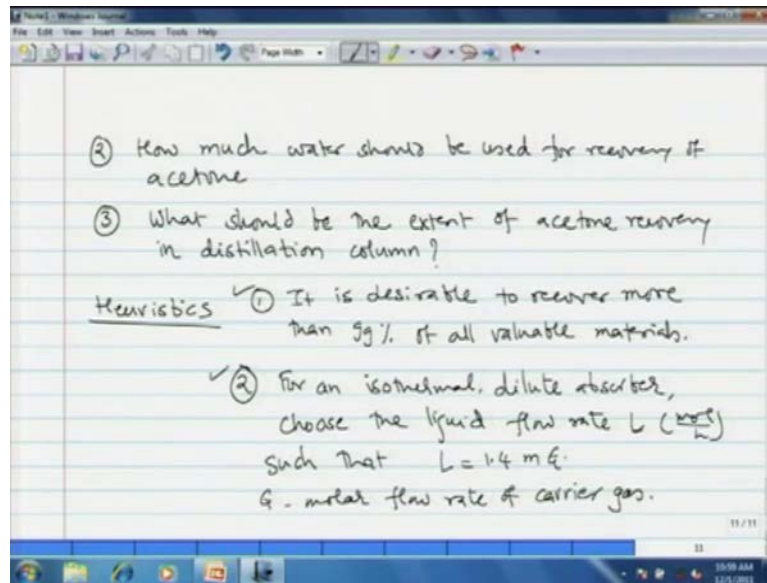 Note1 - Windows Journal
File Edit View Insert Actions Tools Help
Page Width
② How much water should be used for recovery of
acetone
③ What should be the extent of acetone recovery
in distillation column?
Heuristics ✓① It is desirable to recover more
than 99% of all valuable materials.
✓② For an isothermal, dilute absorber,
choose the liquid flow rate L (mol/h)
such that L = 1.4 m G.
G - molar flow rate of carrier gas.
11/11
11
10:59 AM
12/1/2011